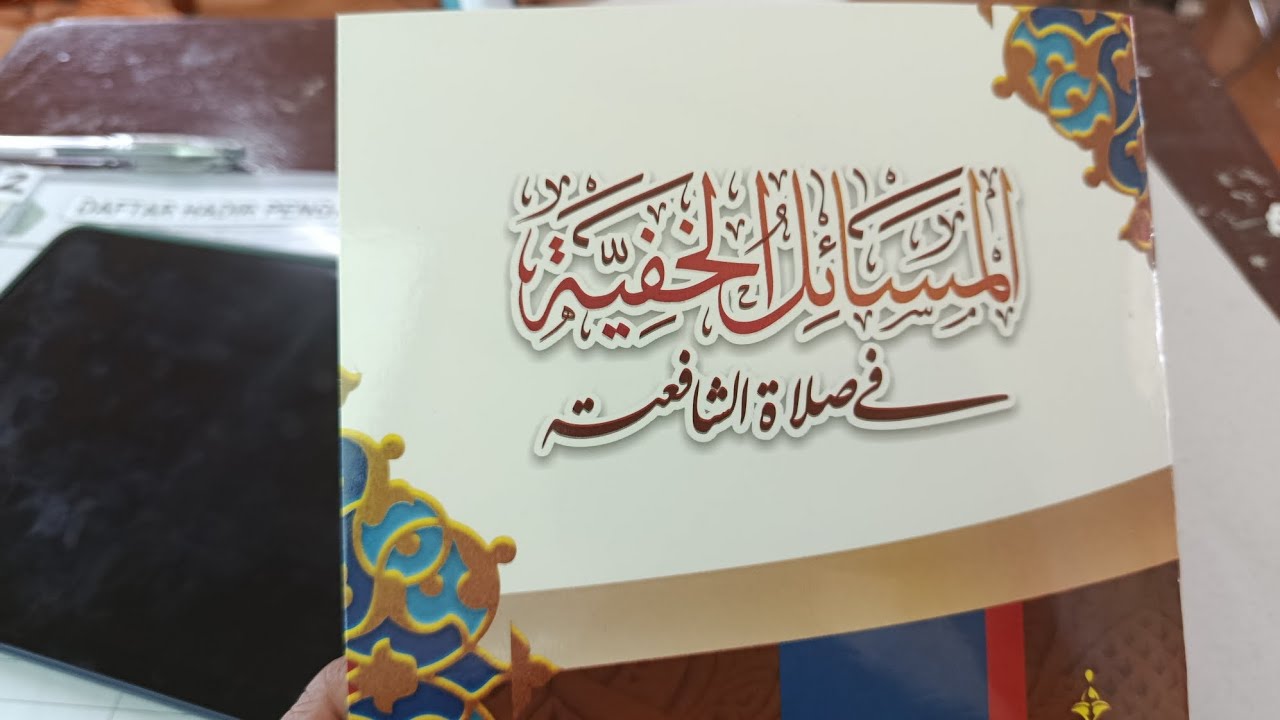 المَسَائِلُ الخَفِيَّة
في صلاة الشافعية
DAFTAR HADIR PENG
2